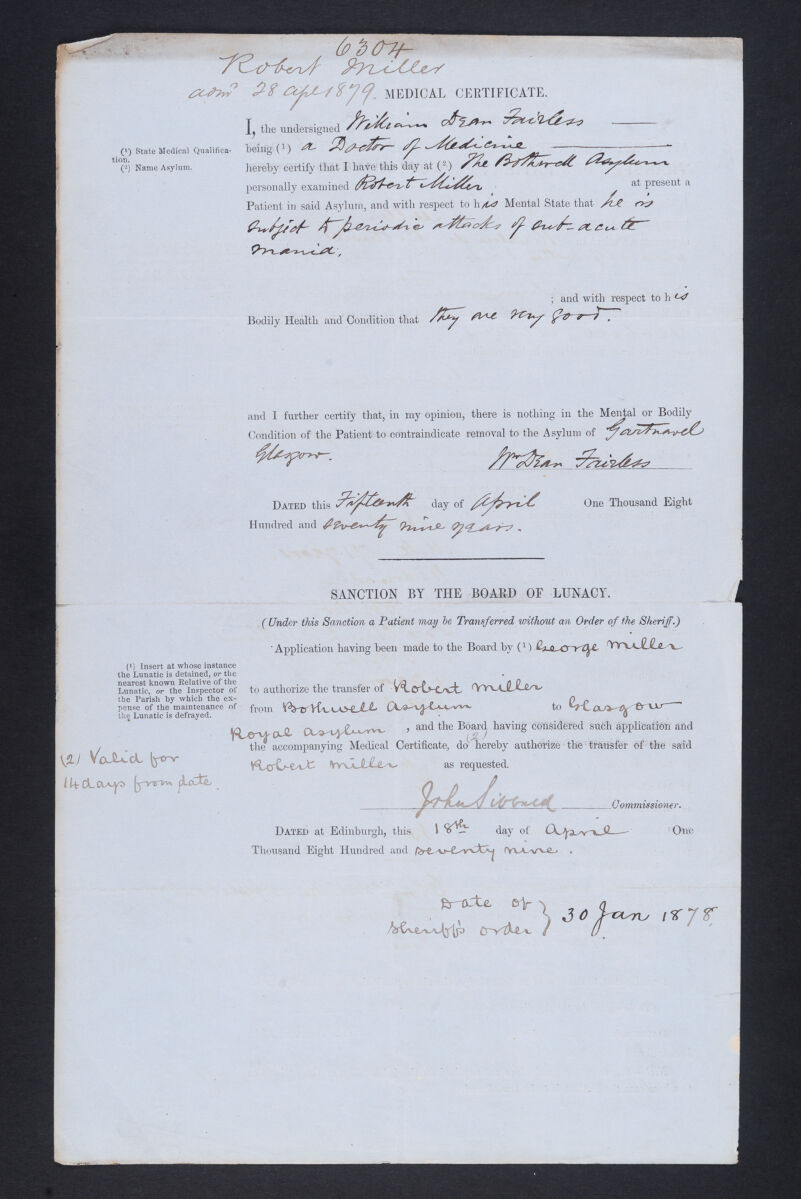 6304
Robert Miller
admd 28 Apl 1879. MEDICAL CERTIFICATE.
I, the undersigned William Dean Fairless
being (1) a Doctor of Medicine
(1) State Medical Qualifica-
tion.
(2) Name Asylum.
hereby certify that I have this day at (2) The Bothwell Asylum
personally examined Robert Miller at present a
Patient in said Asylum, and with respect to his Mental State that he is
subject to periodic attacks of sub-acute
mania.
; and with respect to his
Bodily Health and Condition that they are very good.
and I further certify that, in my opinion, there is nothing in the Mental or Bodily
Condition of the Patient to contraindicate removal to the Asylum of Gartnavel
Glasgow.
Wm Dean Fairless
DATED this Fifteenth day of April One Thousand Eight
Hundred and seventy nine years.
SANCTION BY THE BOARD OF LUNACY.
(Under this Sanction a Patient may be Transferred without an Order of the Sheriff.)
Application having been made to the Board by (1) George Miller
(1) Insert at whose instance
the Lunatic is detained, or the
nearest known Relative of the
Lunatic, or the Inspector of
the Parish by which the ex-
pense of the maintenance of
the Lunatic is defrayed.
to authorize the transfer of Robert Miller
from Bothwell Asylum to Glasgow
Royal Asylum, and the Board having considered such application and
the accompanying Medical Certificate, do (2) hereby authorize the transfer of the said
Robert Miller as requested.
(2) Valid for
14 days from date.
John Sibbald Commissioner.
DATED at Edinburgh, this 18th day of April One
Thousand Eight Hundred and seventy nine.
Date of
Sheriff's order } 30 Jan 1878.